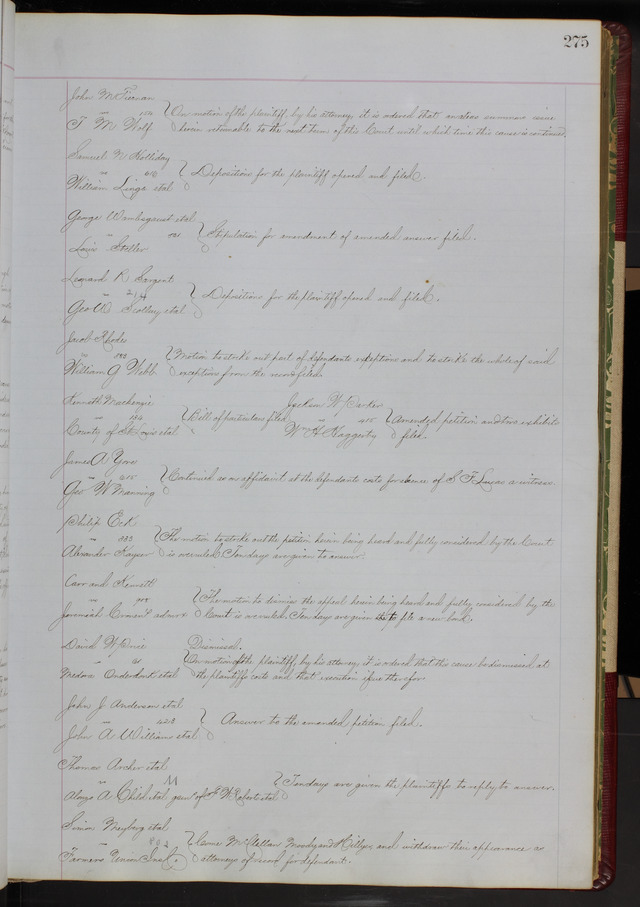 275
John McTiernan
vs
T. M. Wolf
On motion of the plaintiff, by his attorney, it is ordered that an alias summons issue
herein returnable to the next term of this Court until which time this cause is continued.
Samuel N Holliday
vs
William Linga etal
Deposition for the plaintiff opened and filed.
George Wambsganst etal
vs
Louis Stoller
Stipulation for amendment of amended answer filed.
Leonard R Sargent
vs 214
Geo W etal
Deposition for the plaintiff opened and filed.
Jacob Rhodes
vs
William G Webb
Motion to strike out part of defendants exceptions and to strike the whole of said
exceptions from the record filed.
Kenneth Mackenzie
vs
County of St Louis etal
Bill of particulars filed
Jackson W Parker
vs 415
Wm H Haggerty
Amended petition and two exhibits
filed.
James A Yore
vs
Geo W Manning
Continued as on affidavit at the defendants costs for absence of S F Lucas a witness.
Philip Eck
vs 333
Alexander Kayser
The motion to strike out the petition herein being heard and fully considered by the Court
is overruled, Ten days are given to answer.
Carr and Kennett
vs
Jeremiah admr
The motion to dismiss the appeal herein being heard and fully considered by the
Court is overruled. Ten days are given to file a new bond.
David W Price
vs
Medora Onderdonk etal
Dismissed.
On motion of the plaintiff, by his attorney, it is ordered that this cause be dismissed at
the plaintiffs costs and that execution issue therefor.
John J Anderson etal
vs 428
John A Williams etal
Answer to the amended petition filed.
Thomas Archer etal
vs
Alonzo A Child etal garn of etal
Ten days are given the plaintiffs to reply to answer.
Simon Meyberg etal
vs 802
Farmers Union Insl.
Came McClellan Moody and Hillyer and withdraw their appearance as
attorneys of record for defendant.